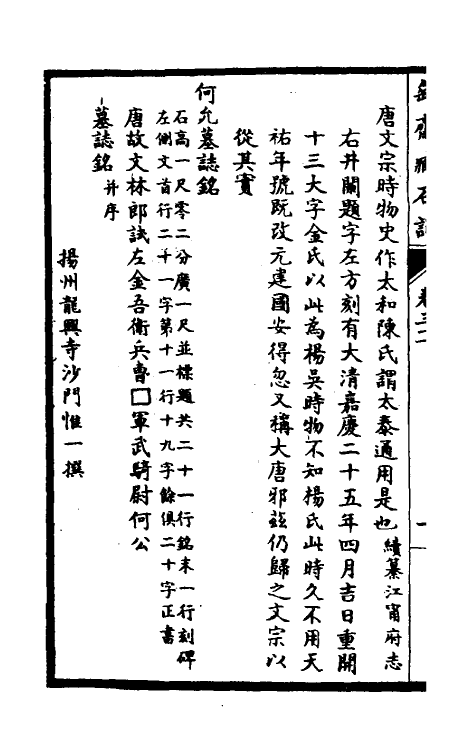 匋齋臧石記 卷三二 一
唐文宗時物史作太和陳氏謂太泰通用是也續纂江甯府志
右井闌題字左方刻有大清嘉慶二十五年四月吉日重開
十三大字金氏以此為楊吳時物不知楊氏此時久不用天
祐年號既改元建國安得忽又稱大唐邪茲仍歸之文宗以
從其實
何允墓誌銘
石高一尺零二分廣一尺並標題共二十一行銘末一行刻碑
左側文首行二十一字第十一行十九字餘俱二十字正書
唐故文林郎試左金吾衛兵曹□軍武騎尉何公
墓誌銘并序
揚州龍興寺沙門惟一撰